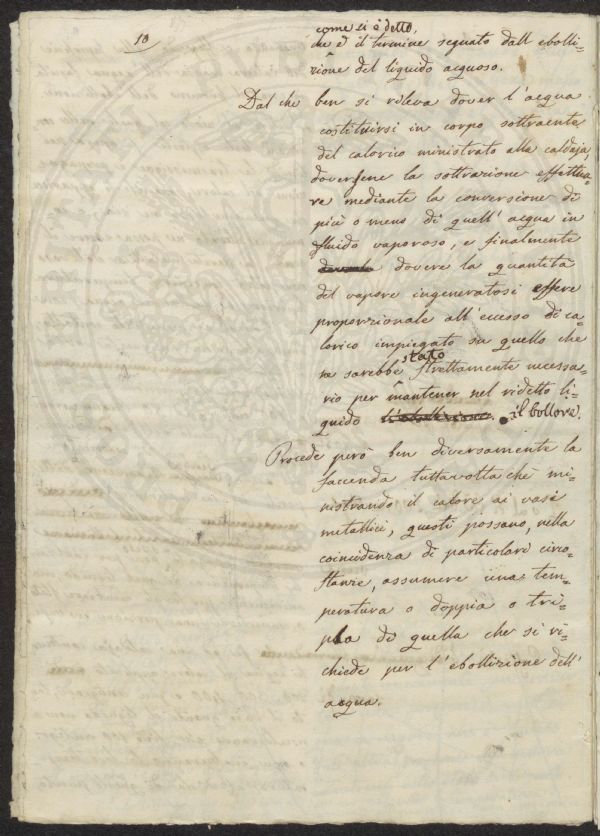 10
come si è detto,
che è il termine segnato dall' ebolli=
zione del liquido acquoso.
Dal che ben si rileva dover l'acqua
costituirsi in corpo sottraente
del calorico ministrato alla caldaja,
doversene la sottrazione effettua=
re mediante la conversione di
più o meno di quell' acqua in
fluido vaporoso, e finalmente
dovere la quantità
del vapore ingeneratosi essere
proporzionale all' eccesso di ca=
lorico impiegato su quello che
stato
ne sarebbe strettamente necessa=
rio per mantener nel ridetto li=
quido l'ebollizione. il bollore.
Procede però ben diversamente la
faccenda tuttavolta che mi=
nistrando il calore ai vasi
metallici, questi possano, nella
coincidenza di particolari circo=
stanze, assumere una tem=
peratura o doppia o tri=
pla di quella che si ri=
chiede per l'ebollizione dell'
acqua.